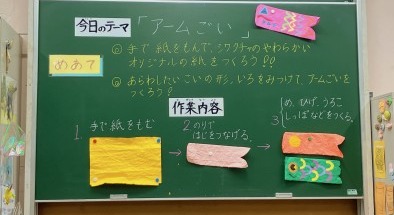 今日のテーマ 「アームごい」
めあて
◎ 手で紙をもんで、シワクチャのやわらかい
オリジナルの紙をつくろう!!
◎ あらわしたいこいの形、いろをみつけて、アームごいを
つくろう!
作業内容
1. 手で紙をもむ
2. のりで
はしをつなげる。
3. め、ひげ、うろこ
しっぽなどをつくる。